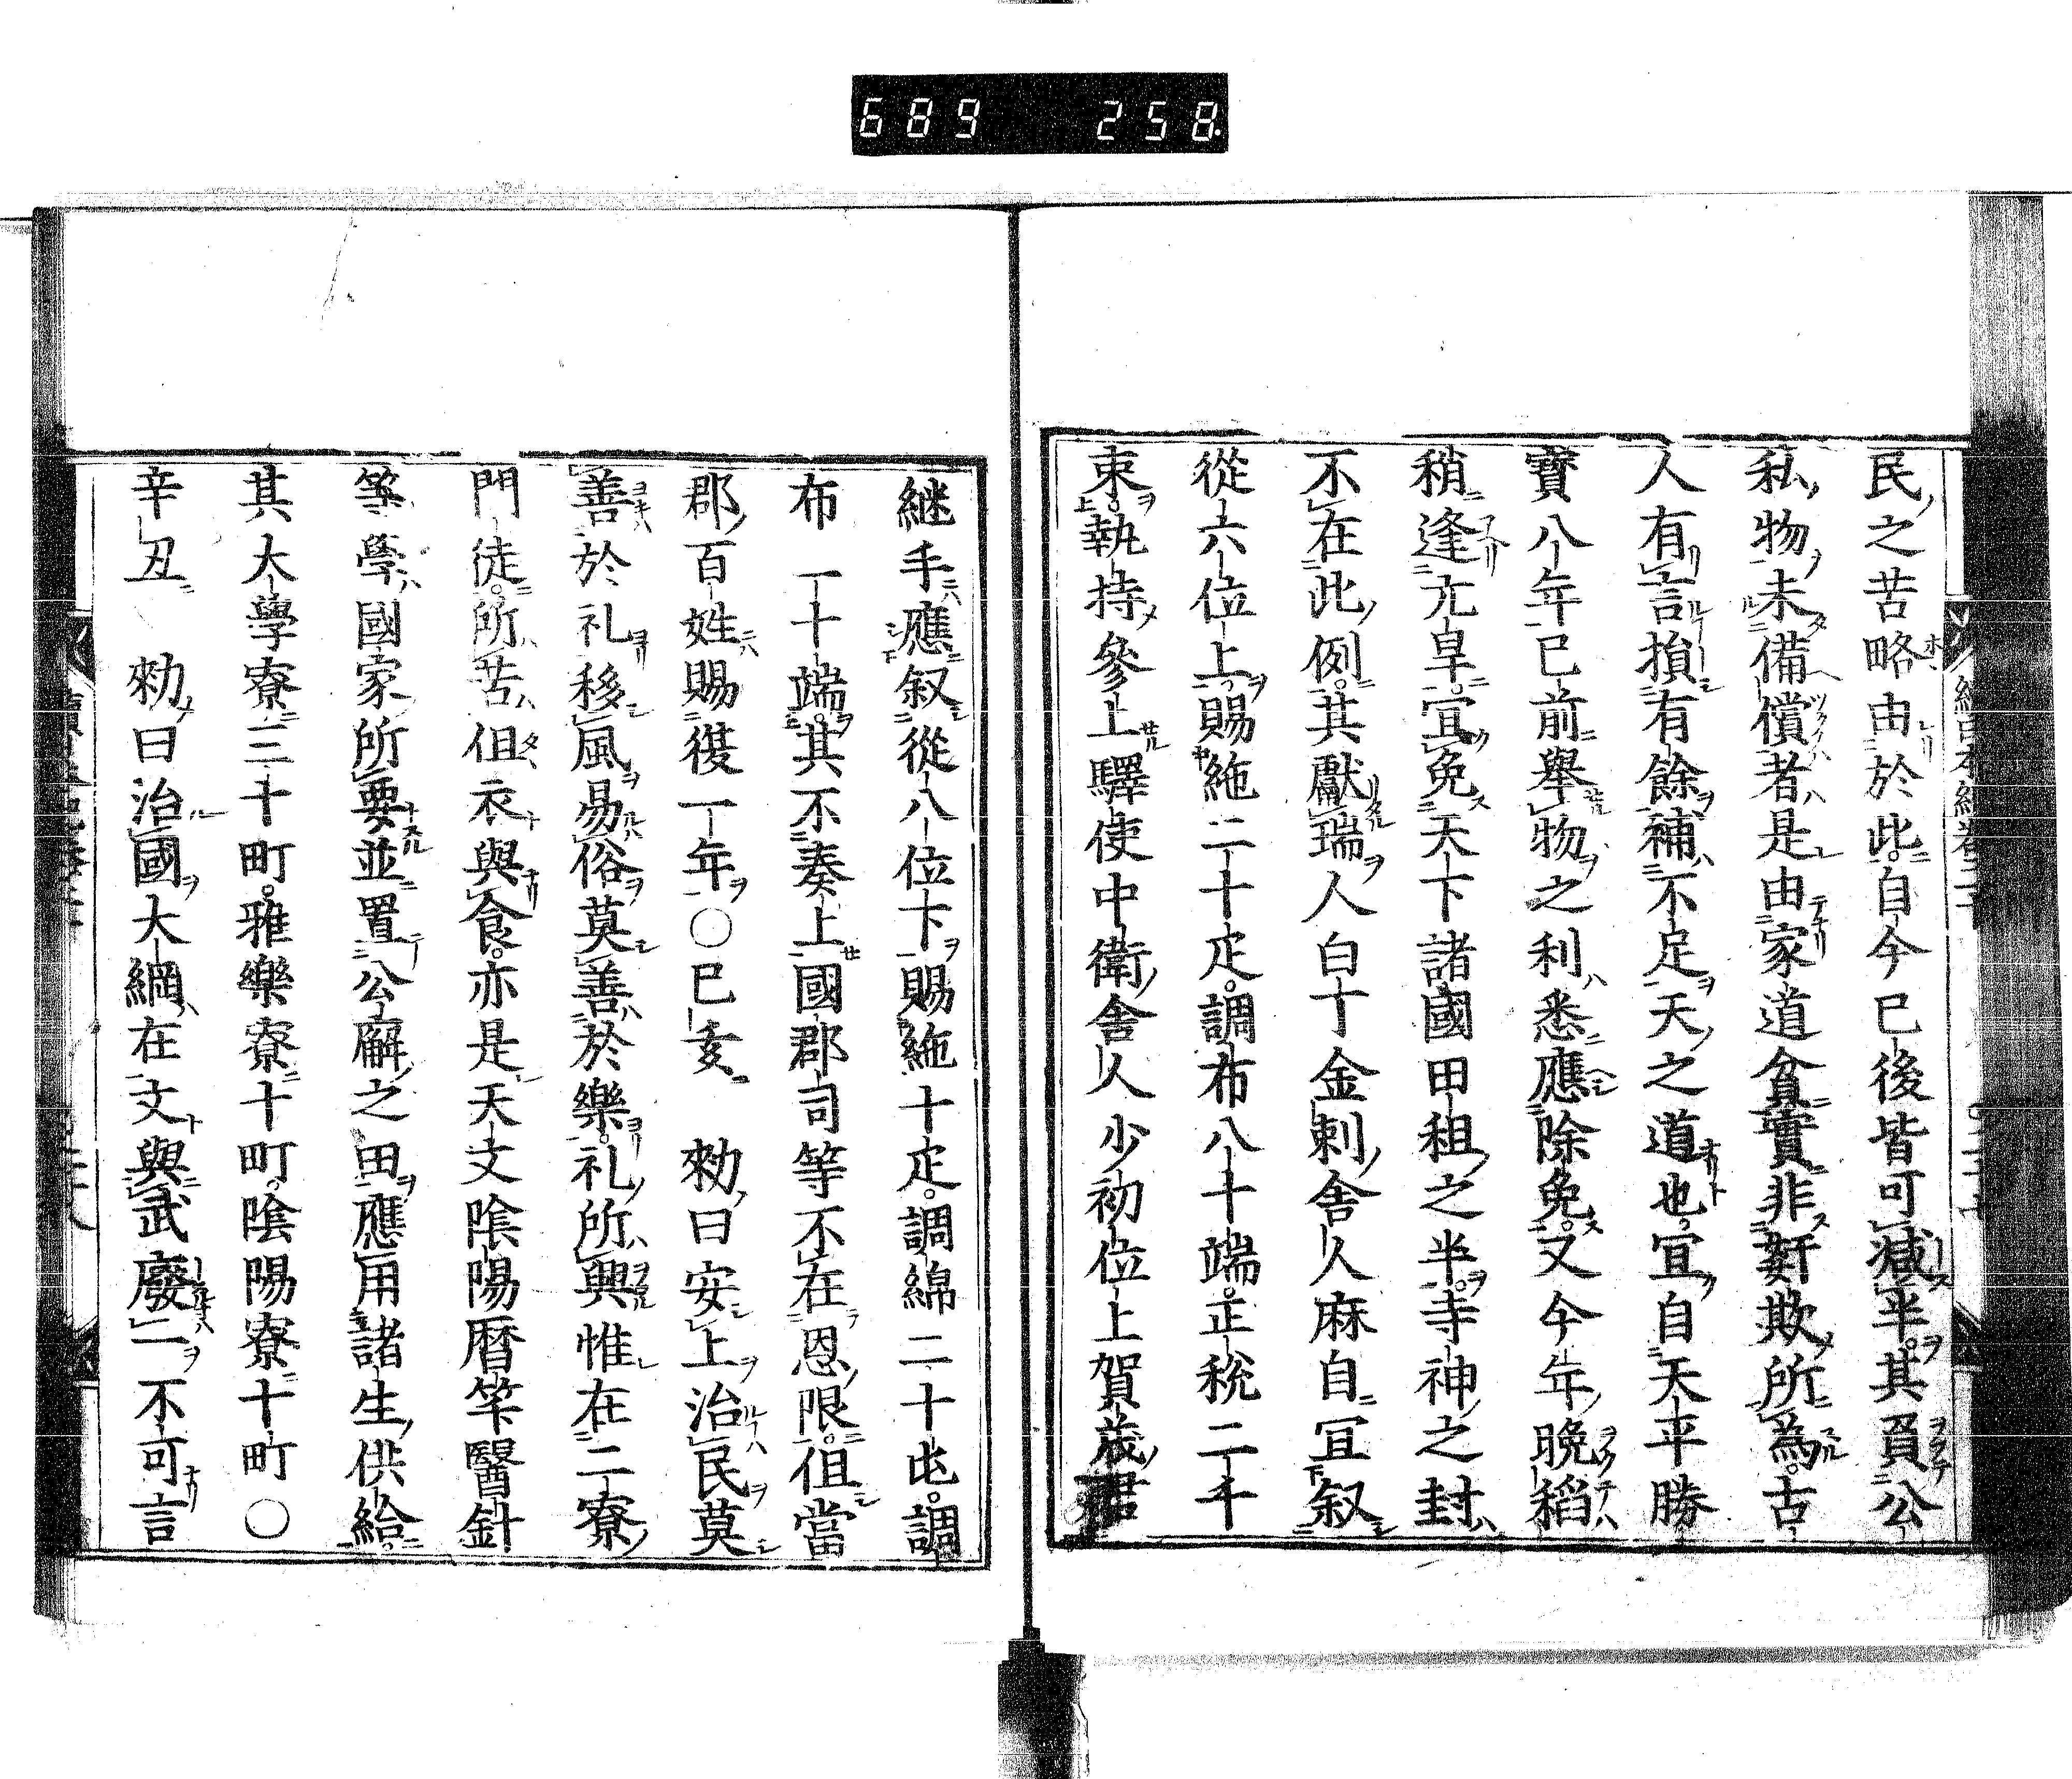 689 258
民之苦略由於此自今已後皆可減半其負公
私物未備償者是由家道貧實非姧欺所為古
人有言損有餘補不足天之道也宜自天平勝
寶八年已前舉物之利悉應除免又今年晩稻
稍逢亢旱宜免天下諸國田租之半寺神之封
不在此例其獻瑞人白丁金刺舍人麻自宜叙
從六位上賜絁二十疋調布八十端正税二千
束執持參上驛使中衛舍人少初位上賀茂君
継手應叙從八位下賜絁十疋調綿二十屯調
布一十端其不奏上國郡司等不在恩限但當
郡百姓賜復一年〇已亥 勑曰安上治民莫
善於礼移風易俗莫善於樂礼所興惟在二寮
門徒所苦但衣與食亦是天文陰陽暦筭醫針
等學國家所要並置公廨之田應用諸生供給
其大學寮三十町雅樂寮十町陰陽寮十町〇
辛丑 勑曰治國大綱在文與武廢一不可言